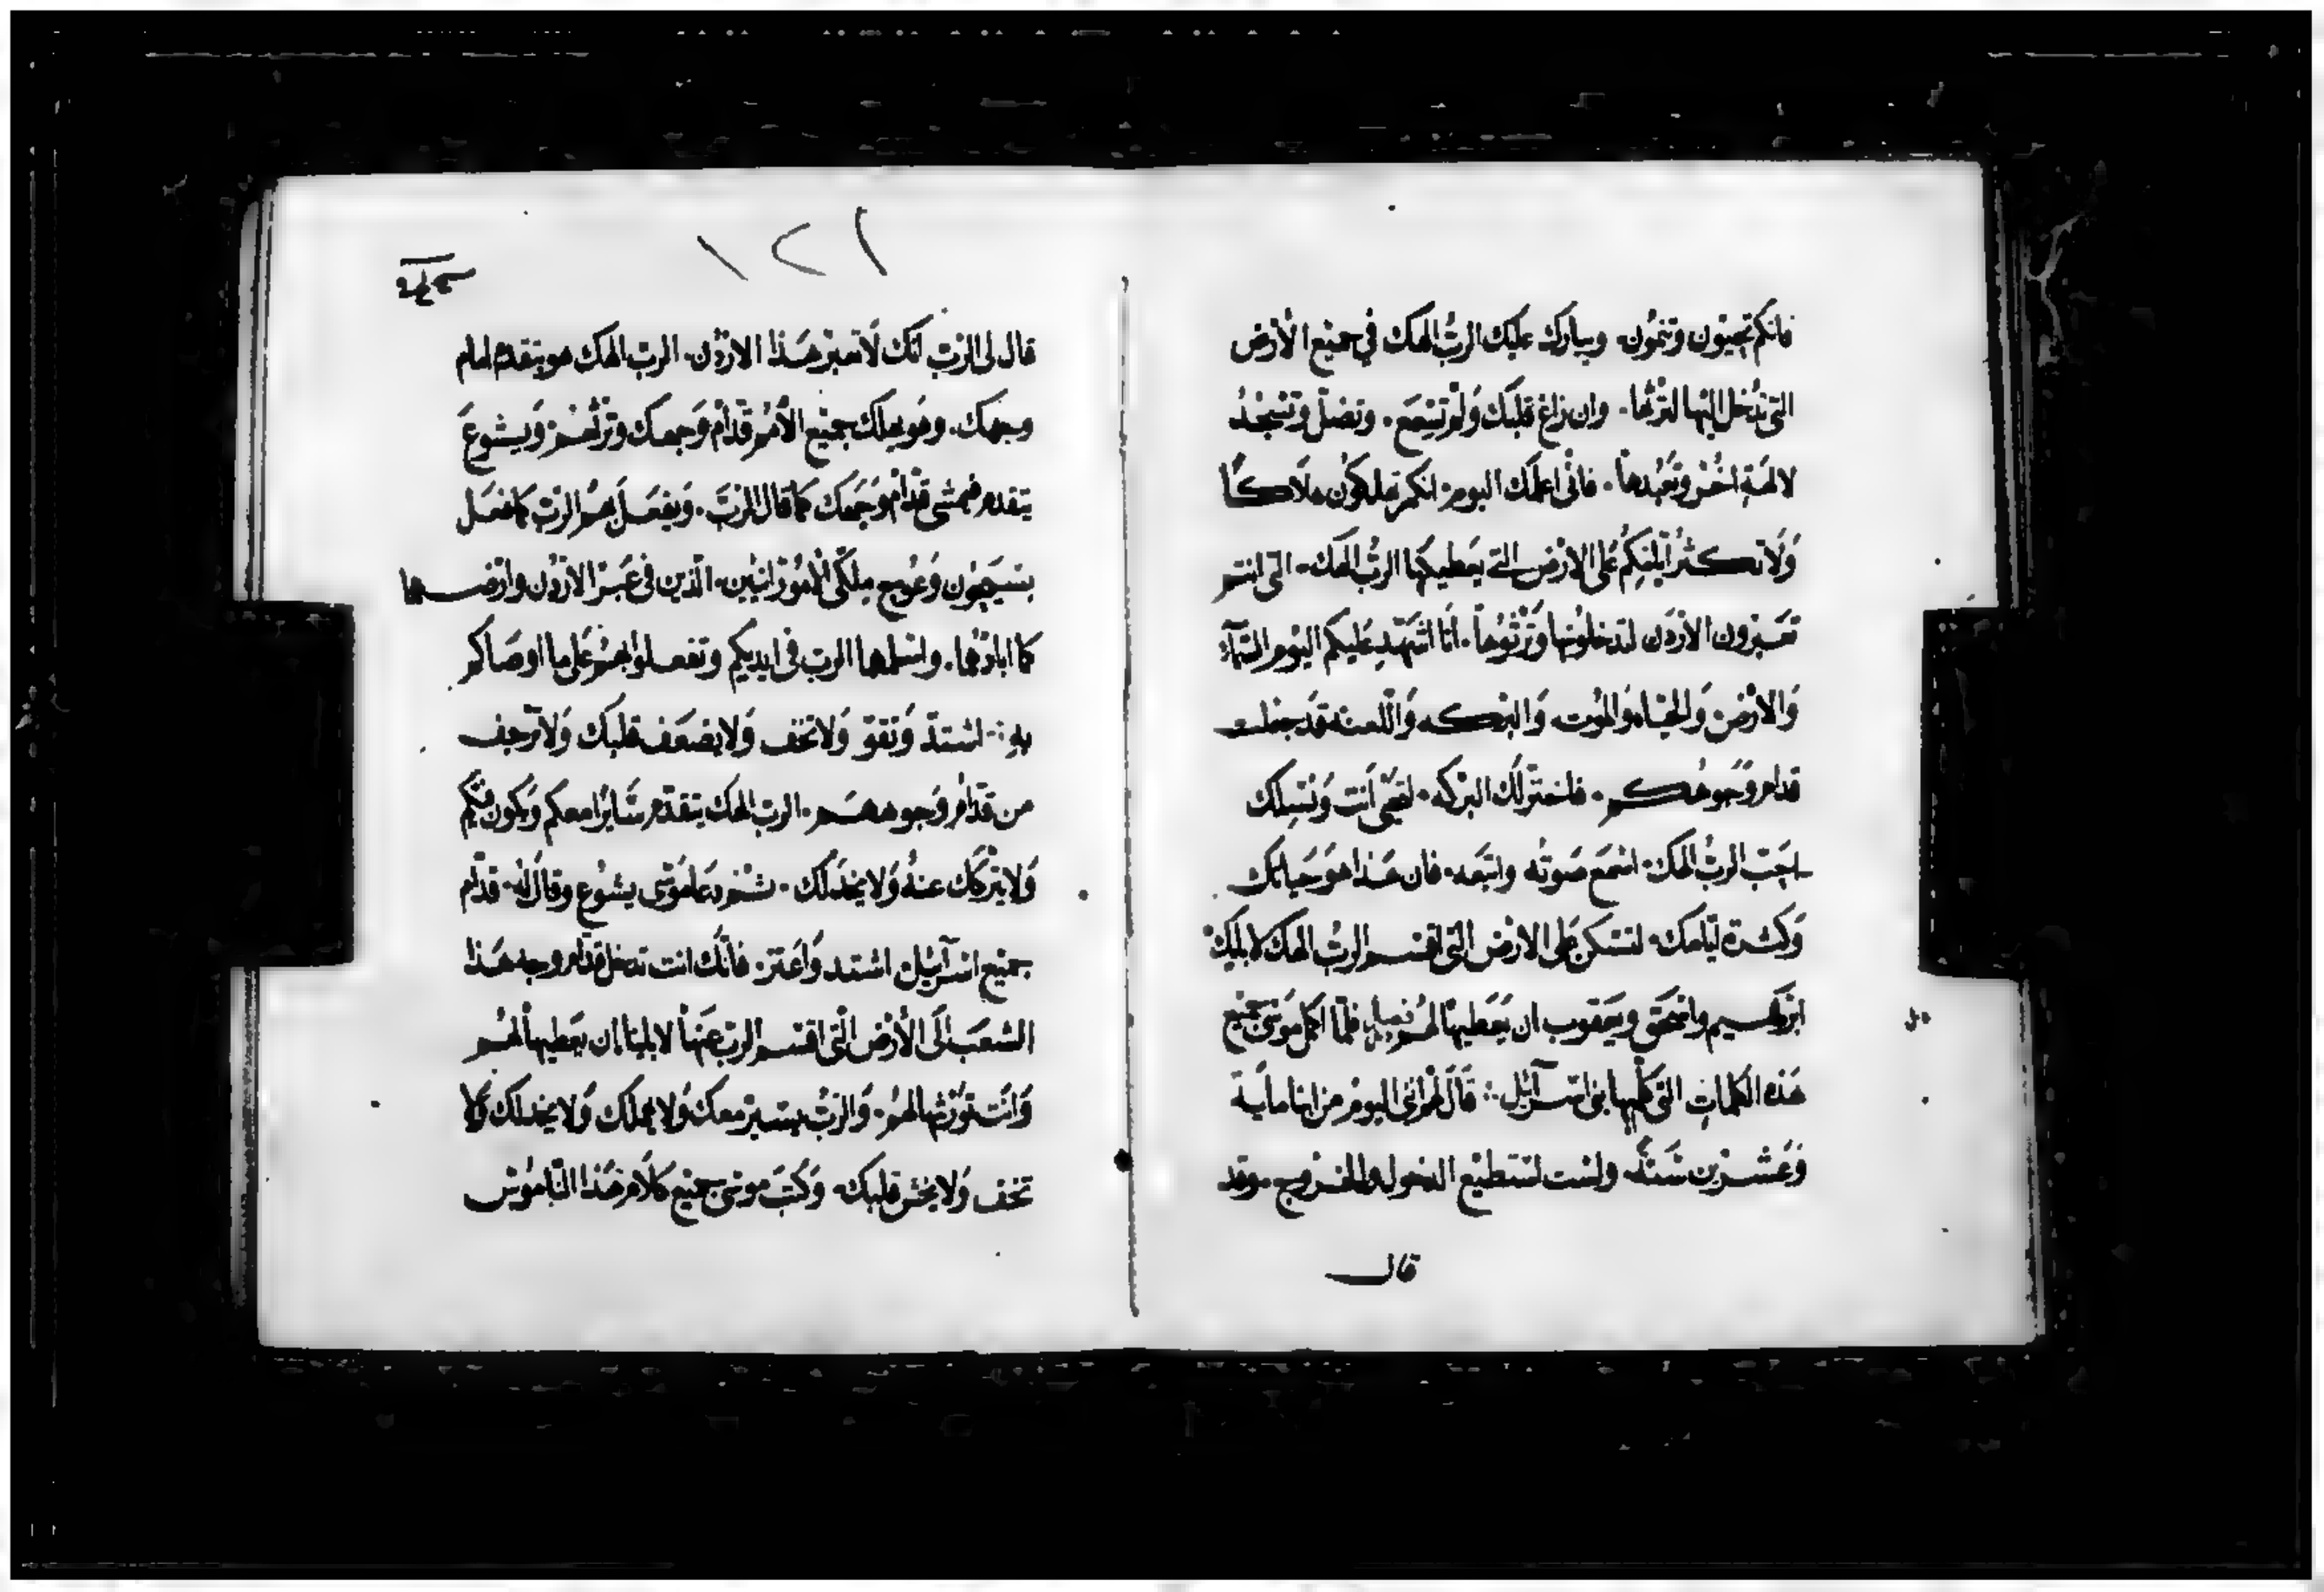 فانكم تحيون وتنمون. ويبارك عليك الربُّ الهك في جميع الأرض
التى تدخل اليها لترثها. وان زاغ قلبك ولم تسمع. وتضل وتسجدُ
لالهة اخر وتعبدها. فانى اعلمك اليوم. انكم تهلكون هلاكاً
وَلا تكثر أيامكم على الارض التى يعطيكها الربُّ الهك. التى انتم
تعبرون الأردن لتدخلونها وترثوها. أنا اشهد عليكم اليوم السّمآء
وَالارض وَالحياه والموت وَالبركه وَاللعنه قد جعلت
قدام وجوهكم. فاختر لك البركه. لتحيى أنت ونسلك
احبّ الربُّ الهك. اسمع صوته واتبعه. فان هذا هو حياتك
وَكثرة أيامك. لتسكن على الارض التى اقسم الربُّ الهك لابايك
ابراهيم واسحق ويعقوب ان يعطيها لهم فلمّا اكمل موسى جميع
هذه الكلمات التى كلم بها بنى اسرآئيل: قال لهم انى اليوم من ابنا ماية
وَعشرين سَنَة. ولست استطيع الدخول والخروج. وقد
قال
١٢١
قال لى الرَّب انك لا تعبر هذا الاردُن. الرب الهك هو يتقدم امام
وجهك. وهو يهلك جميع الأمم قدّام وَجهك وترثهم وَيشوع
يتقدم فيمشى قدام وَجهك كما قال الرَبّ. وَيفعل بهم الرَبّ كما فعَل
بسيحون وَعُوج ملكَى الأموُرانيين. الّذين فى عبر الاردُن وارضهما
كما ابادَها. واسلمها الرب فى ايديكم وتفعلوا بهم على ما اوصاكم
به: اشتدّ وَتقوّ وَلا تخف وَلا يضعف قلبك وَلا ترجف
من قدّام وجوههم. الرب الهك يتقدّم سَايرا معكم وَيكون فيكم
وَلا يتركك عنهُ وَلا يخذلك. ثم دَعا موسى يشوع وقال له. قدّام
جميع اسرآئيل اشتد وَاعتز. فانّك انت تدخل قدام وجه هذا
الشعبَ الَى الأرض التى اقسم الربّ عَنها لابائنا ان يعطيها لهُم
وَانت تورثها لهمُ. وَالربُّ يسير معك وَلا يهملك وَلا يخذلك لا
تخف وَلا يخش قلبك. وَكتبَ موسى جميع كلام هَذا النّاموُس